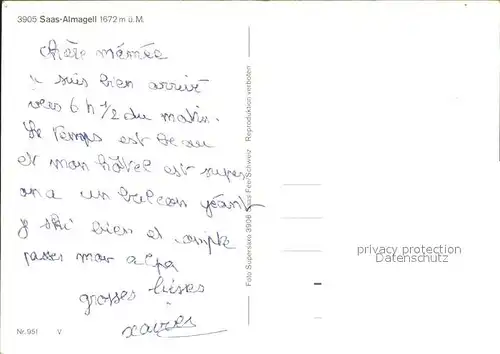 3905 Saas-Almagell 1672 m ü.M.
chère mémée
je suis bien arrivé
vers 6 h 1/2 du matin.
Le temps est beau
et mon hôtel est super
on a un balcon géant
je ski bien et compte
passer mon
grosses bises
xavier
Nr. 951 V
Foto Supersaxo 3906 Saas Fee/Schweiz Reproduktion verboten
privacy protection
Datenschutz